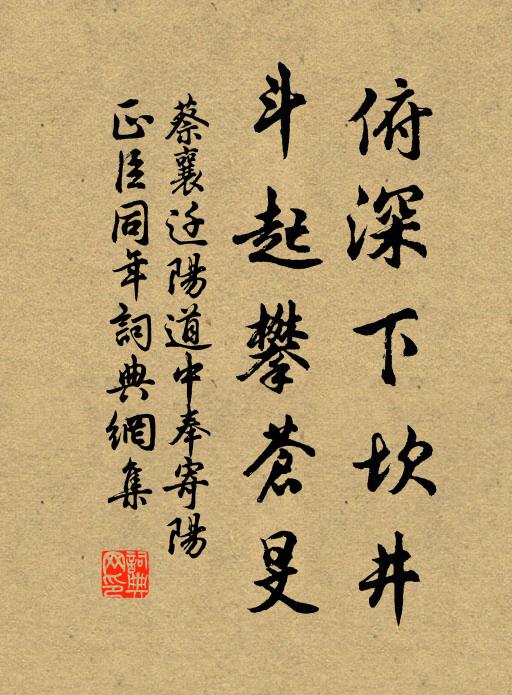 俯深下坎井
斗起攀苍旻
蔡襄迁阳道中奉寄阳
正臣同年詞典網集
詞典網印